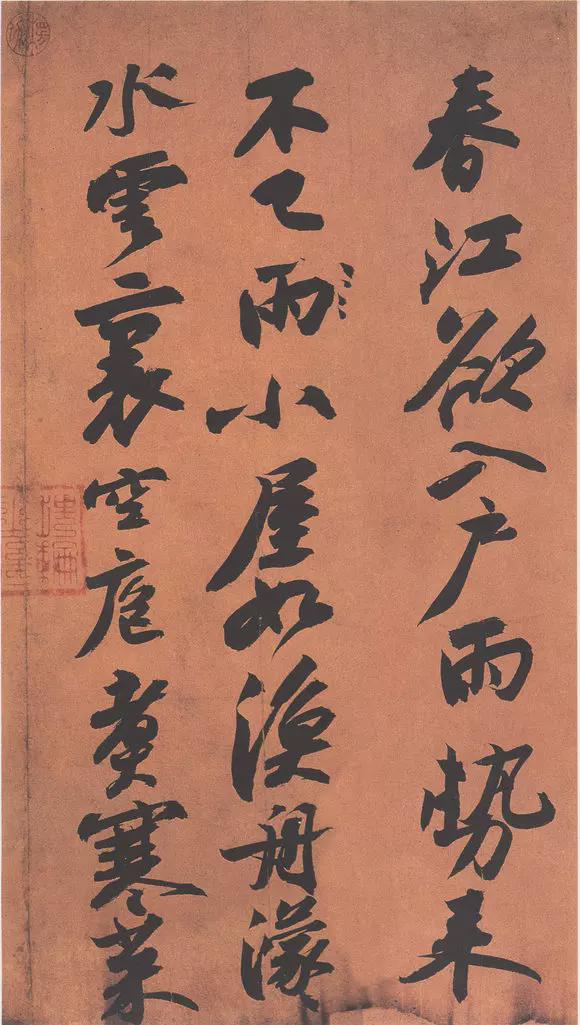 春江欲入户雨勢来
不已雨小屋如漁舟濛〻
水雲裏空庖煑寒菜